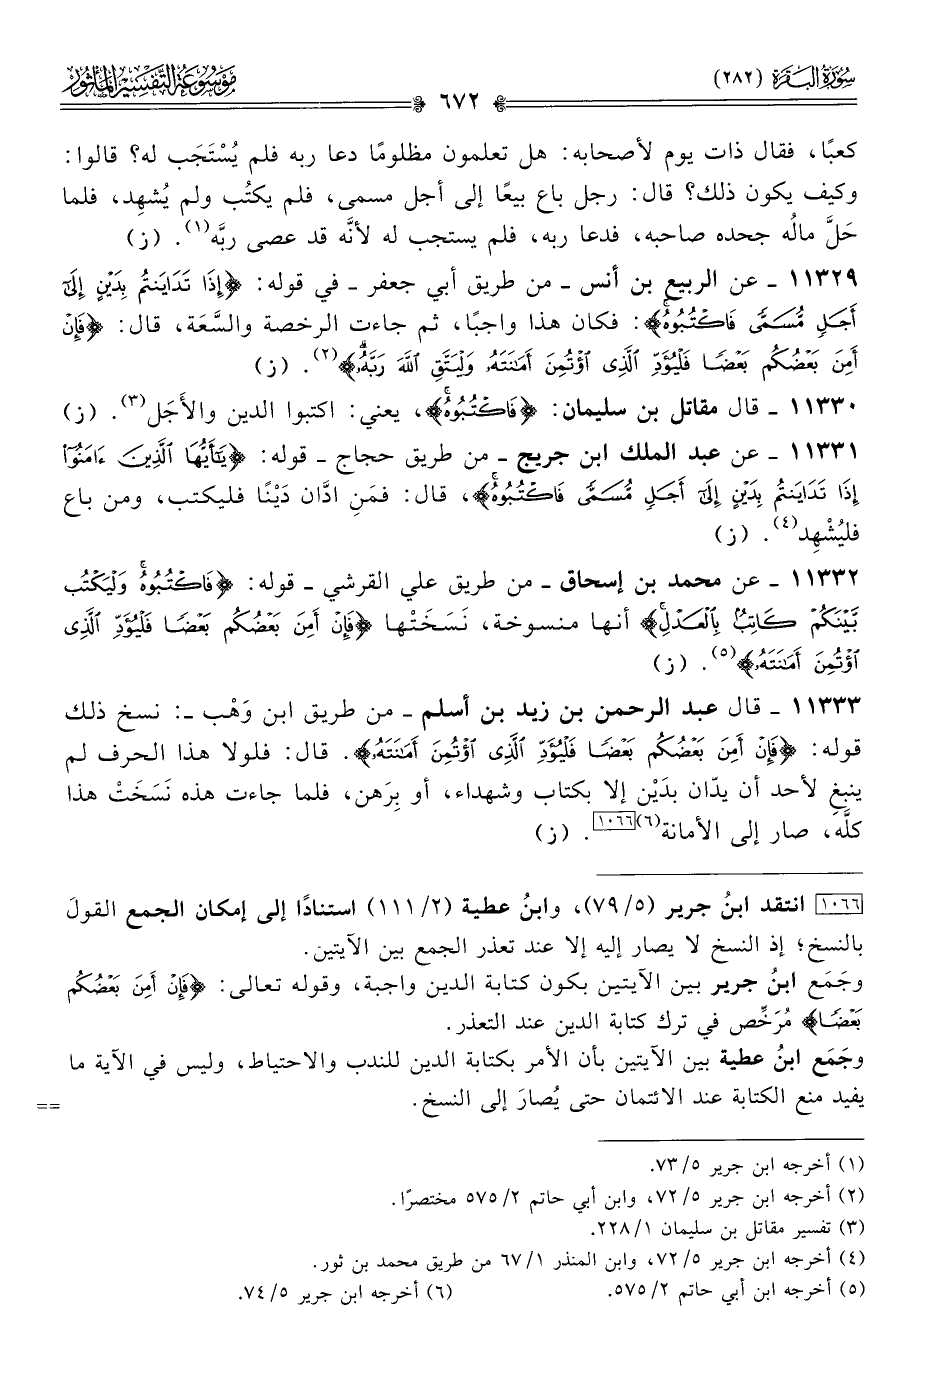 سورة البقرة (٢٨٢)
موسوعة التفسير المأثور
٦٧٢
كعبًا، فقال ذات يوم لأصحابه: هل تعلمون مظلومًا دعا ربه فلم يُسْتَجَب له؟ قالوا:
وكيف يكون ذلك؟ قال: رجل باع بيعًا إلى أجل مسمى، فلم يكتُب ولم يُشهِد، فلما
حَلَّ مالُه جحده صاحبه، فدعا ربه، فلم يستجب له لأنَّه قد عصى ربَّه(١). (ز)
١١٣٢٩ ـ عن الربيع بن أنس ـ من طريق أبي جعفر ـ في قوله: ﴿إِذَا تَدَايَنتُم بِدَيْنٍ إِلَىٰٓ
أَجَلٍ مُّسَمًّى فَاكْتُبُوهُ﴾: فكان هذا واجبًا، ثم جاءت الرخصة والسَّعَة، قال: ﴿فَإِنْ
أَمِنَ بَعْضُكُم بَعْضًا فَلْيُؤَدِّ ٱلَّذِى ٱؤْتُمِنَ أَمَـٰنَتَهُۥ وَلْيَتَّقِ ٱللَّهَ رَبَّهُۥ﴾(٢). (ز)
١١٣٣٠ ـ قال مقاتل بن سليمان: ﴿فَاكْتُبُوهُ﴾، يعني: اكتبوا الدين والأَجَل(٣). (ز)
١١٣٣١ ـ عن عبد الملك ابن جريج ـ من طريق حجاج ـ قوله: ﴿يَـٰٓأَيُّهَا ٱلَّذِينَ ءَامَنُوٓا۟
إِذَا تَدَايَنتُم بِدَيْنٍ إِلَىٰٓ أَجَلٍ مُّسَمًّى فَاكْتُبُوهُ﴾، قال: فمَنِ ادَّان دَيْنًا فليكتب، ومن باع
فليُشْهِد(٤). (ز)
١١٣٣٢ ـ عن محمد بن إسحاق ـ من طريق علي القرشي ـ قوله: ﴿فَاكْتُبُوهُ وَلْيَكْتُب
بَّيْنَكُمْ كَاتِبٌۢ بِٱلْعَدْلِ﴾ أنها منسوخة، نَسَخَتْها ﴿فَإِنْ أَمِنَ بَعْضُكُم بَعْضًا فَلْيُؤَدِّ ٱلَّذِى
ٱؤْتُمِنَ أَمَـٰنَتَهُۥ﴾(٥). (ز)
١١٣٣٣ ـ قال عبد الرحمن بن زيد بن أسلم ـ من طريق ابن وَهْب ـ: نسخ ذلك
قوله: ﴿فَإِنْ أَمِنَ بَعْضُكُم بَعْضًا فَلْيُؤَدِّ ٱلَّذِى ٱؤْتُمِنَ أَمَـٰنَتَهُۥ﴾. قال: فلولا هذا الحرف لم
ينبغِ لأحد أن يدّان بدَيْن إلا بكتاب وشهداء، أو بِرَهن، فلما جاءت هذه نَسَخَتْ هذا
كلَّه، صار إلى الأمانة(٦)[١٠٦٦]. (ز)
[١٠٦٦] انتقد ابنُ جرير (٧٩/٥)، وابنُ عطية (١١١/٢) استنادًا إلى إمكان الجمع القولَ
بالنسخ؛ إذ النسخ لا يصار إليه إلا عند تعذر الجمع بين الآيتين.
وجَمَع ابنُ جرير بين الآيتين بكون كتابة الدين واجبة، وقوله تعالى: ﴿فَإِنْ أَمِنَ بَعْضُكُم
بَعْضًا﴾ مُرَخِّص في ترك كتابة الدين عند التعذر.
وجَمَع ابنُ عطية بين الآيتين بأن الأمر بكتابة الدين للندب والاحتياط، وليس في الآية ما
يفيد منع الكتابة عند الائتمان حتى يُصارَ إلى النسخ. ==
(١) أخرجه ابن جرير ٧٣/٥.
(٢) أخرجه ابن جرير ٧٢/٥، وابن أبي حاتم ٥٧٥/٢ مختصرًا.
(٣) تفسير مقاتل بن سليمان ٢٢٨/١.
(٤) أخرجه ابن جرير ٧٢/٥، وابن المنذر ٦٧/١ من طريق محمد بن ثور.
(٥) أخرجه ابن أبي حاتم ٥٧٥/٢. (٦) أخرجه ابن جرير ٧٤/٥.